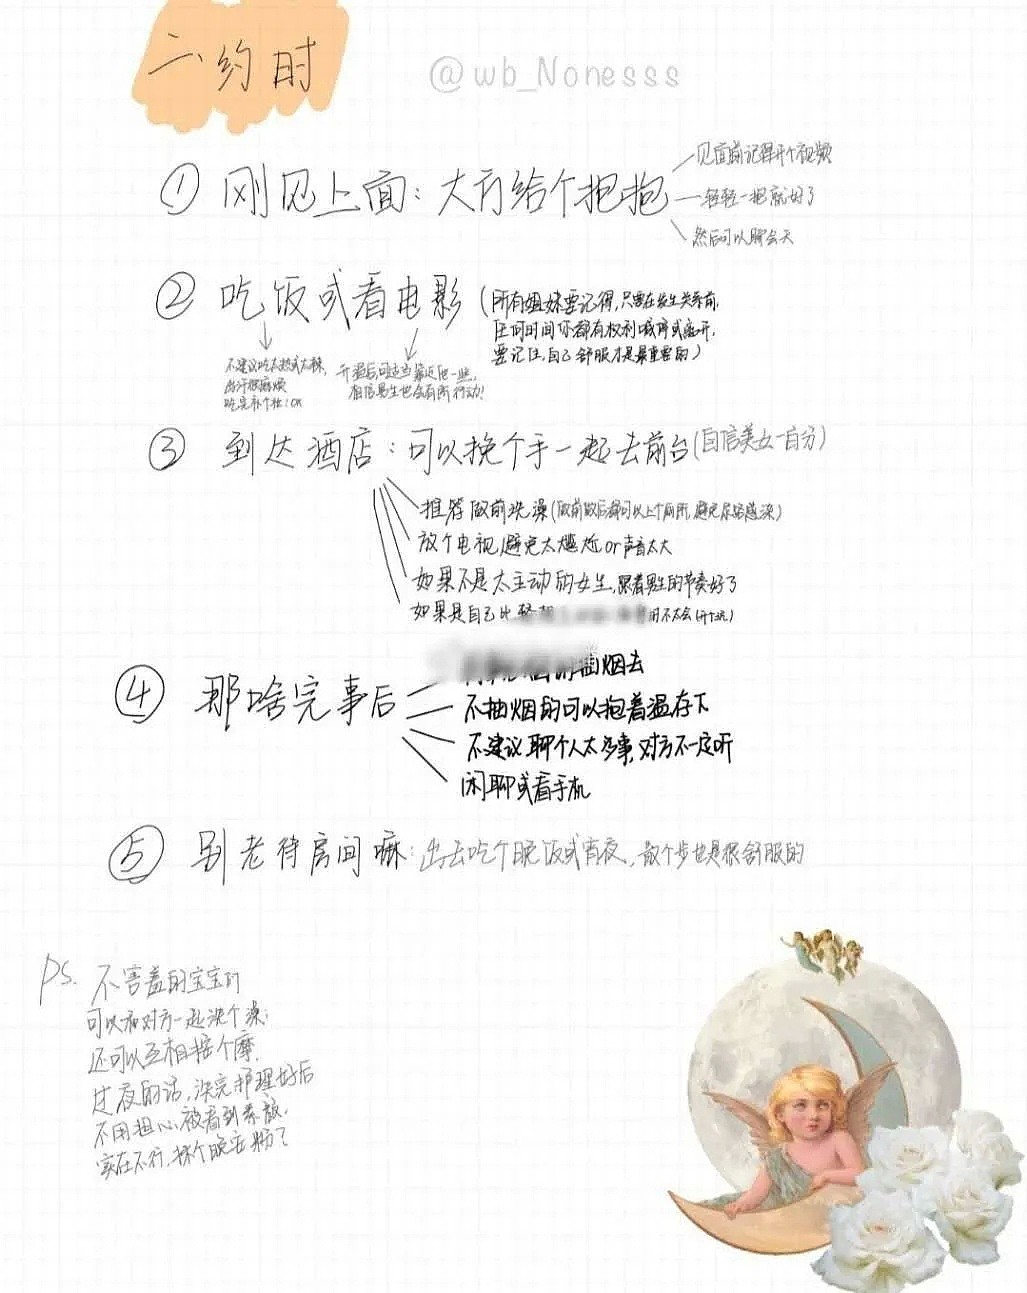 二、约时
@wb_Nonesss
① 刚见上面：大方给个抱抱
见面前记得开个视频
轻轻一抱就好了
然后可以聊会天
② 吃饭或看电影
（所有姐妹要记得，只要在发生关系前，
任何时间你都有权利喊停或离开，
要记住，自己舒服才是最重要的）
不建议吃太热或太辣，
出汗很麻烦
吃完补个妆！OK
开温后可适当靠近他一些，
相信男生也会有所行动！
③ 到达酒店：可以挽个手一起去前台（自信美女一百分）
推荐做前洗澡（做前做后都可以上个厕所，避免尿路感染）
放个电视，避免太尴尬or声音太大
如果不是太主动的女生，跟着男生的节奏好了
如果是自己比较
不太会
④ 那啥完事后
烟去
不抽烟的可以抱着温存下
不建议聊个人太多事，对方不一定听
闲聊或看手机
⑤ 别老待房间嘛：出去吃个晚饭或宵夜，散个步也是很舒服的
PS. 不害羞的宝宝们
可以和对方一起洗个澡；
还可以互相按个摩，
过夜的话，洗完护理好后
不用担心被看到素颜，
实在不行，抹个晚安粉了